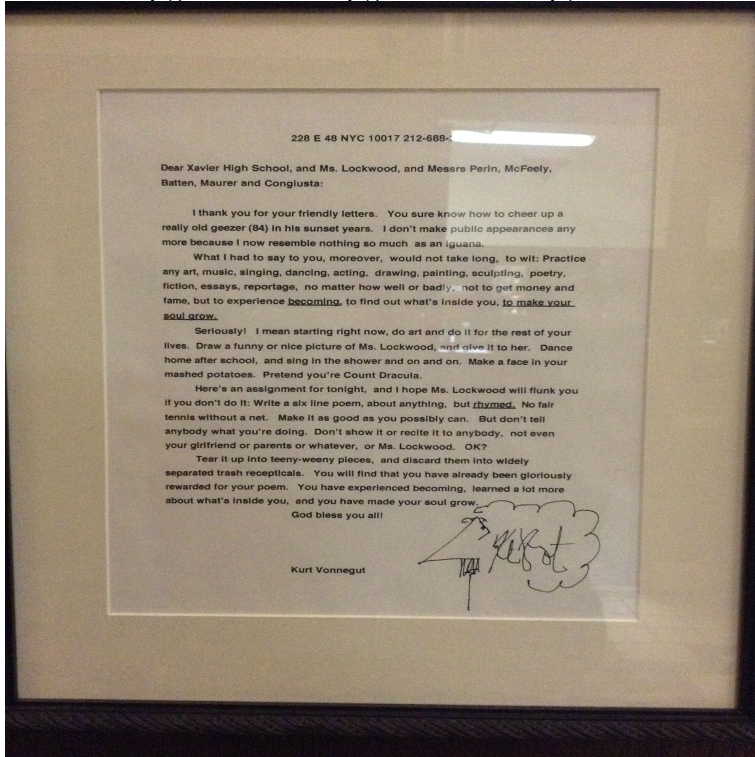 228 E 48 NYC 10017 212-688-
Dear Xavier High School, and Ms. Lockwood, and Messrs Perin, McFeely,
Batten, Maurer and Congiusta:
I thank you for your friendly letters. You sure know how to cheer up a
really old geezer (84) in his sunset years. I don't make public appearances any
more because I now resemble nothing so much as an iguana.
What I had to say to you, moreover, would not take long, to wit: Practice
any art, music, singing, dancing, acting, drawing, painting, sculpting, poetry,
fiction, essays, reportage, no matter how well or badly, not to get money and
fame, but to experience becoming, to find out what's inside you, to make your
soul grow.
Seriously! I mean starting right now, do art and do it for the rest of your
lives. Draw a funny or nice picture of Ms. Lockwood, and give it to her. Dance
home after school, and sing in the shower and on and on. Make a face in your
mashed potatoes. Pretend you're Count Dracula.
Here's an assignment for tonight, and I hope Ms. Lockwood will flunk you
if you don't do it: Write a six line poem, about anything, but rhymed. No fair
tennis without a net. Make it as good as you possibly can. But don't tell
anybody what you're doing. Don't show it or recite it to anybody, not even
your girlfriend or parents or whatever, or Ms. Lockwood. OK?
Tear it up into teeny-weeny pieces, and discard them into widely
separated trash recepticals. You will find that you have already been gloriously
rewarded for your poem. You have experienced becoming, learned a lot more
about what's inside you, and you have made your soul grow.
God bless you all!
Kurt Vonnegut